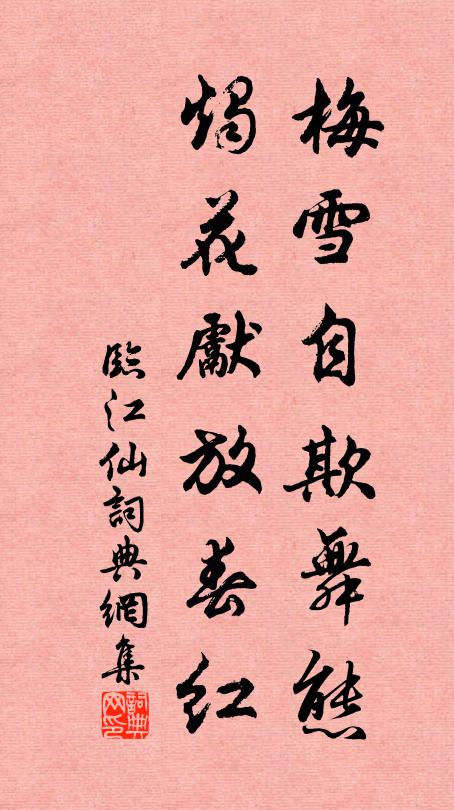 梅雪自欺舞態
燭花獻放春紅
臨江仙詞典網集
詞典网印